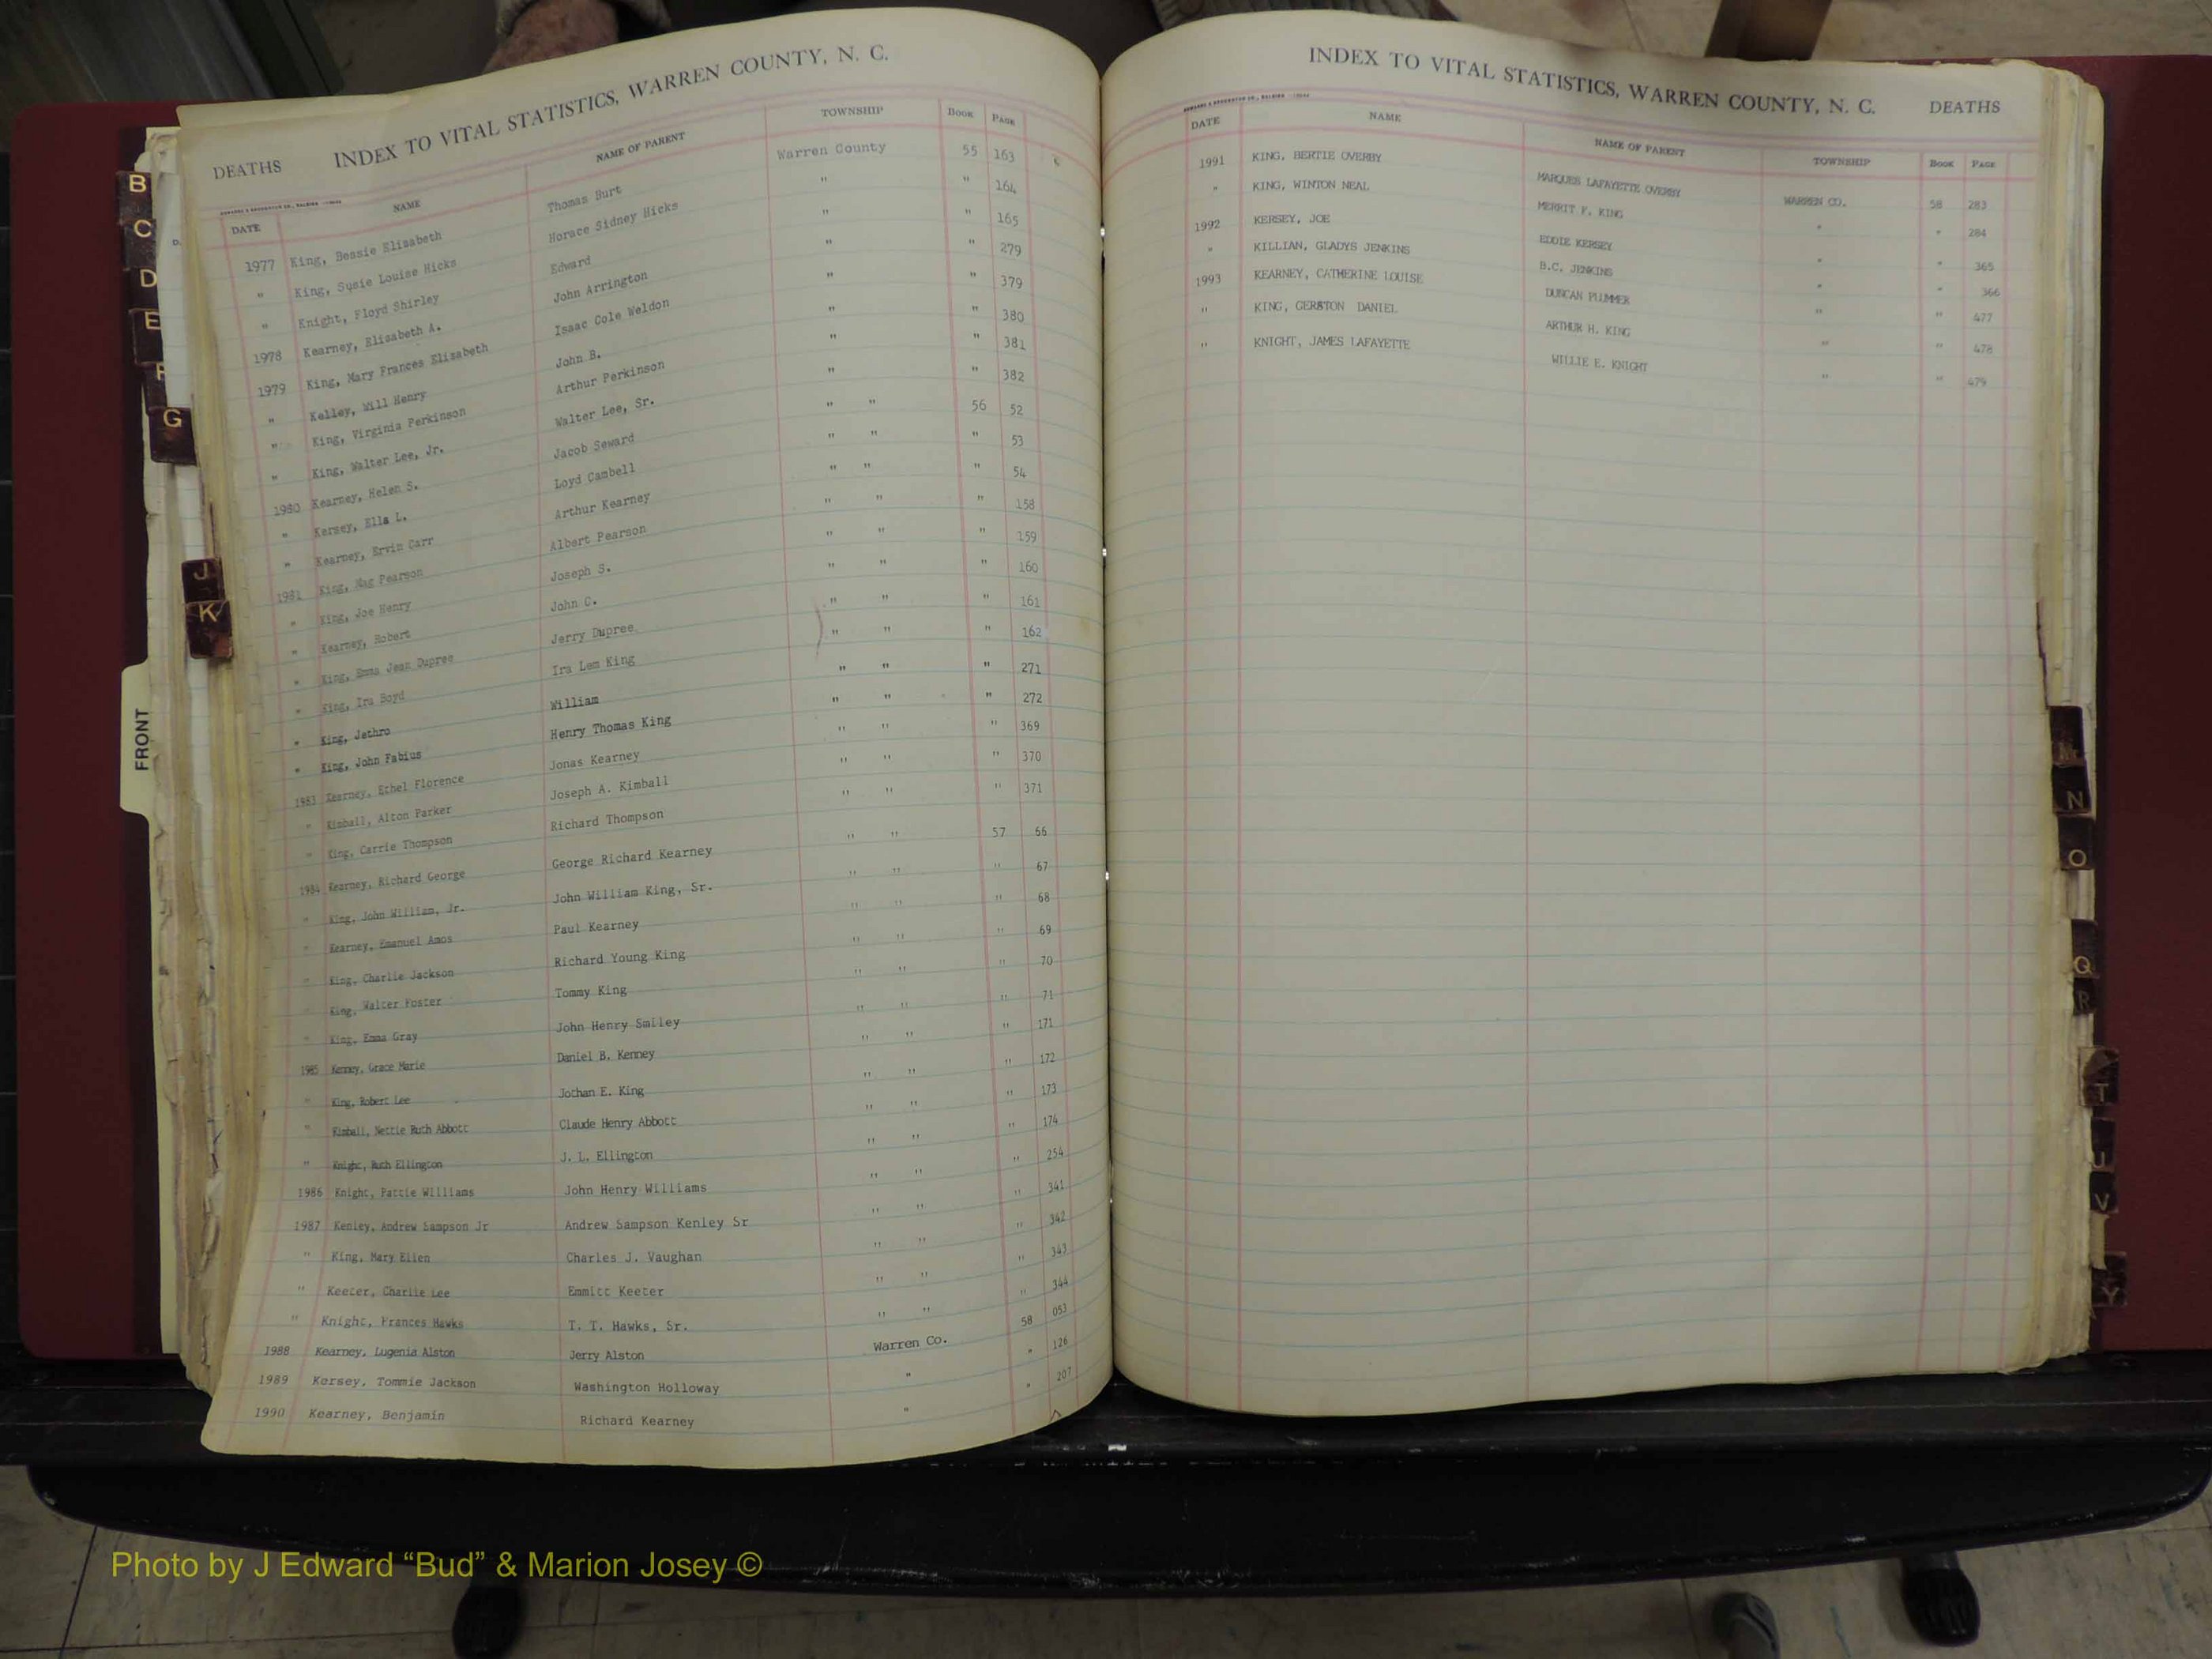 DEATHS INDEX TO VITAL STATISTICS, WARREN COUNTY, N. C.
DATE NAME NAME OF PARENT TOWNSHIP BOOK PAGE
1977 King, Bessie Elizabeth Thomas Burt Warren County 55 163
" King, Susie Louise Hicks Horace Sidney Hicks " " 164
" Knight, Floyd Shirley Edward " " 165
1978 Kearney, Elizabeth A. John Arrington " " 279
1979 King, Mary Frances Elizabeth Isaac Cole Weldon " " 379
" Kelley, Will Henry John B. " " 380
" King, Virginia Perkinson Arthur Perkinson " " 381
" King, Walter Lee, Jr. Walter Lee, Sr. " " 382
1980 Kearney, Helen S. Jacob Seward " " 56 52
" Kersey, Ella L. Loyd Cambell " " " 53
" Kearney, Ervin Carr Arthur Kearney " " " 54
1981 King, Mag Pearson Albert Pearson " " " 158
" King, Joe Henry Joseph S. " " " 159
" Kearney, Robert John C. " " " 160
" King, Emma Jean Dupree Jerry Dupree " " " 161
" King, Ira Boyd Ira Lem King " " " 162
" King, Jethro William " " " 271
" King, John Fabius Henry Thomas King " " " 272
1983 Kearney, Ethel Florence Jonas Kearney " " " 369
" Kimball, Alton Parker Joseph A. Kimball " " " 370
" King, Carrie Thompson Richard Thompson " " " 371
1984 Kearney, Richard George George Richard Kearney " " 57 66
" King, John William, Jr. John William King, Sr. " " " 67
" Kearney, Emanuel Amos Paul Kearney " " " 68
" King, Charlie Jackson Richard Young King " " " 69
" King, Walter Foster Tommy King " " " 70
" King, Emma Gray John Henry Smiley " " " 71
1985 Kenney, Grace Marie Daniel B. Kenney " " " 171
" King, Robert Lee Jothan E. King " " " 172
" Kimball, Nettie Ruth Abbott Claude Henry Abbott " " " 173
" Knight, Ruth Ellington J. L. Ellington " " " 174
1986 Knight, Pattie Williams John Henry Williams " " " 254
1987 Kenley, Andrew Sampson Jr Andrew Sampson Kenley Sr " " " 341
" King, Mary Ellen Charles J. Vaughan " " " 342
" Keeter, Charlie Lee Emmitt Keeter " " " 343
" Knight, Frances Hawks T. T. Hawks, Sr. " " " 344
1988 Kearney, Lugenia Alston Jerry Alston Warren Co. 58 053
1989 Kersey, Tommie Jackson Washington Holloway " " 126
1990 Kearney, Benjamin Richard Kearney " " 207
INDEX TO VITAL STATISTICS, WARREN COUNTY, N. C. DEATHS
DATE NAME NAME OF PARENT TOWNSHIP BOOK PAGE
1991 KING, BERTIE OVERBY MARQUES LAFAYETTE OVERBY WARREN CO. 58 283
" KING, WINTON NEAL MERRIT F. KING " " 284
1992 KERSEY, JOE EDDIE KERSEY " " 365
" KILLIAN, GLADYS JENKINS B.C. JENKINS " " 366
1993 KEARNEY, CATHERINE LOUISE DUNCAN PLUMMER " " 477
" KING, GERSTON DANIEL ARTHUR H. KING " " 478
" KNIGHT, JAMES LAFAYETTE WILLIE E. KNIGHT " " 479
B
C
D
E
F
G
J
K
FRONT
Mc
N
O
Q
R
T
U
V
Y
Photo by J Edward “Bud” & Marion Josey ©